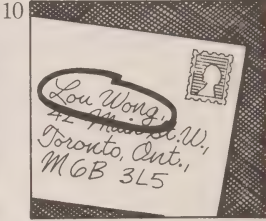 10
Lou Wong,
42 Main St. W.,
Toronto, Ont.,
M6B 3L5